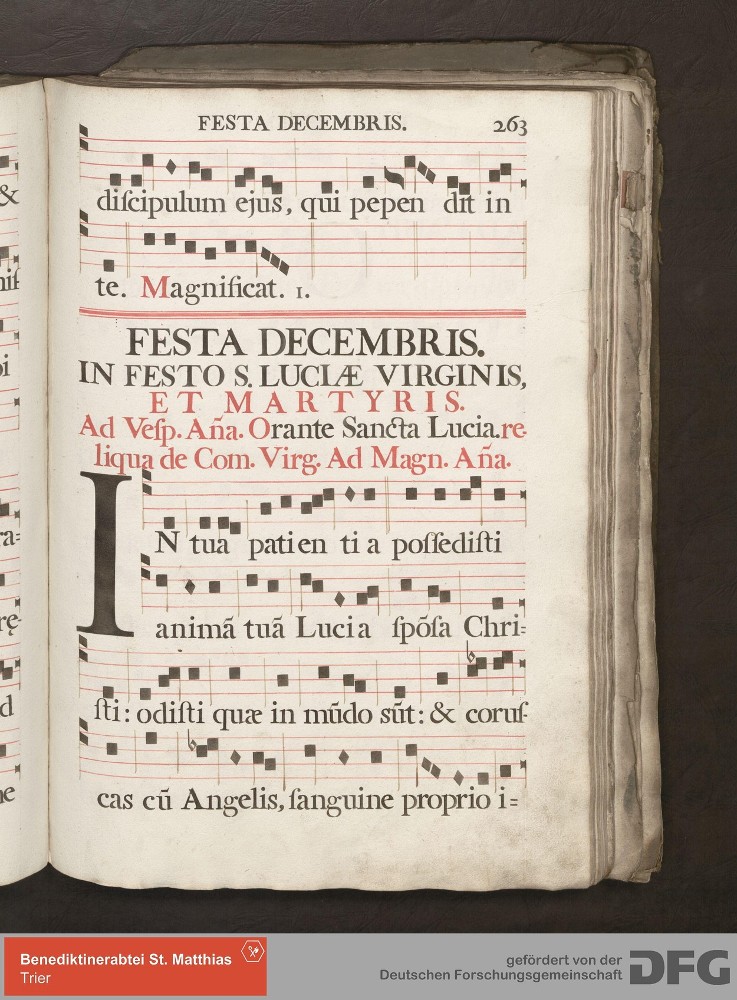 FESTA DECEMBRIS. 263
diſcipulum ejus, qui pepen dit in
te. Magnificat. 1.
FESTA DECEMBRIS.
IN FESTO S. LUCIÆ VIRGINIS,
ET MARTYRIS.
Ad Veſp. Aña. Orante Sancta Lucia. re-
liqua de Com. Virg. Ad Magn. Aña.
IN tua patien ti a poſſediſti
animã tuã Lucia ſpõſa Chri=
ſti: odiſti quæ in mũdo sũt: & coruſ-
cas cũ Angelis, ſanguine proprio i=
&
pi
ra=
rę-
d
ne
Benediktinerabtei St. Matthias
Trier
gefördert von der
Deutschen Forschungsgemeinschaft
DFG